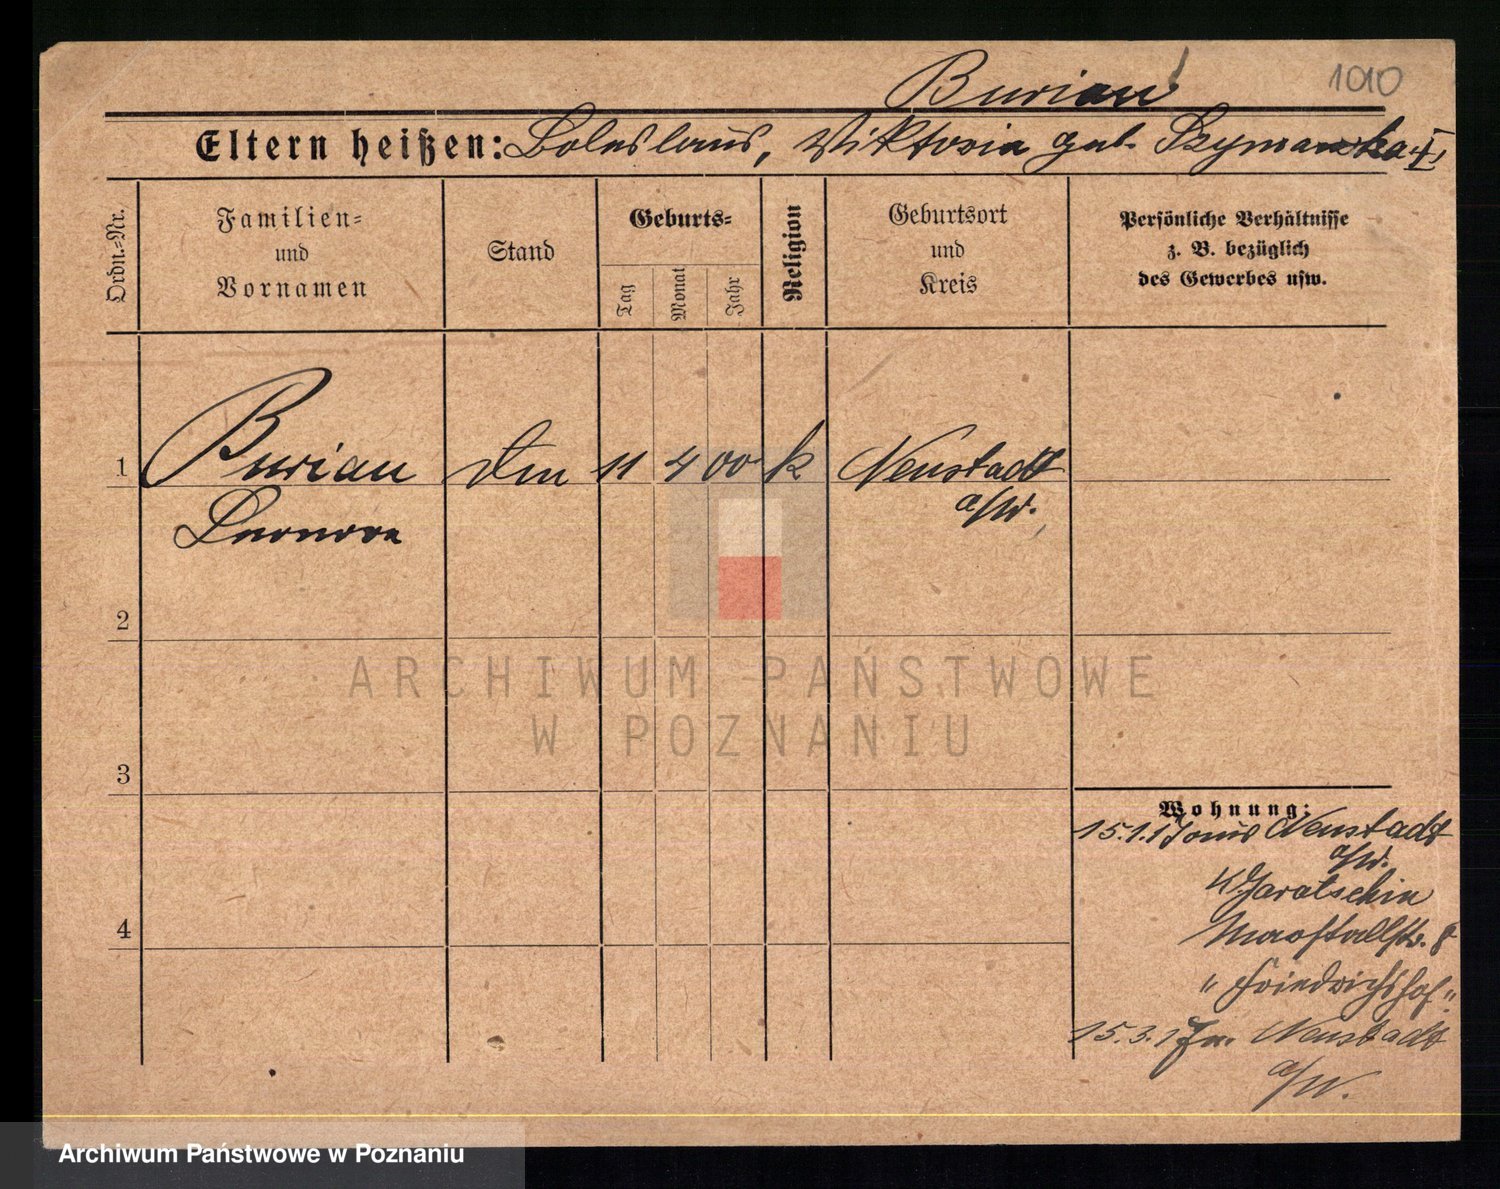 Burian
1010
Eltern heißen: Boleslaus, Viktoria geb. Szymanska
Ordn.-Nr.
Familien-
und
Vornamen
Stand
Geburts-
Tag
Monat
Jahr
Religion
Geburtsort
und
Kreis
Persönliche Verhältnisse
z. B. bezüglich
des Gewerbes usw.
1
Burian 11 4 00 k Neustadt
a/W.
Leonore
2
ARCHIWUM PAŃSTWOWE
W POZNANIU
3
Wohnung:
15.1.17 aus Neustadt
a/W.
Jarotschin
"Friedrichshof"
15.3.17 n. Neustadt
a/W.
4
Archiwum Państwowe w Poznaniu